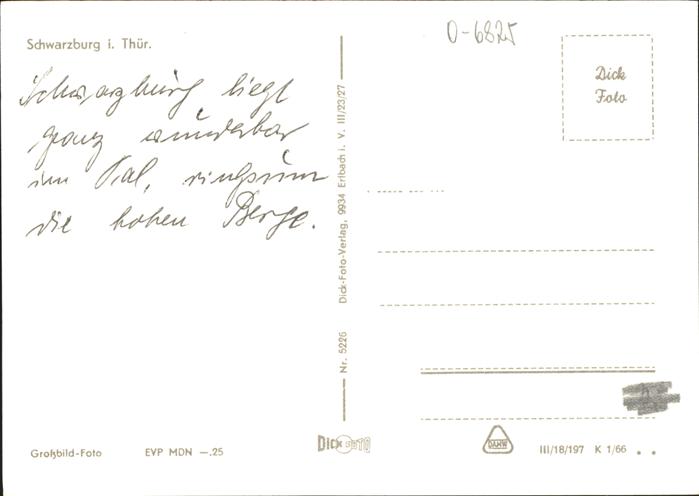 Schwarzburg i. Thür.
O-6825
Dick
Foto
Schwarzburg liegt
ganz wunderbar
im Tal, ringsum
die hohen Berge.
Nr. 5226 Dick-Foto-Verlag, 9934 Erlbach i. V. III/23/27
Großbild-Foto EVP MDN —.25
DICK FOTO
DAMW
III/18/197 K 1/66